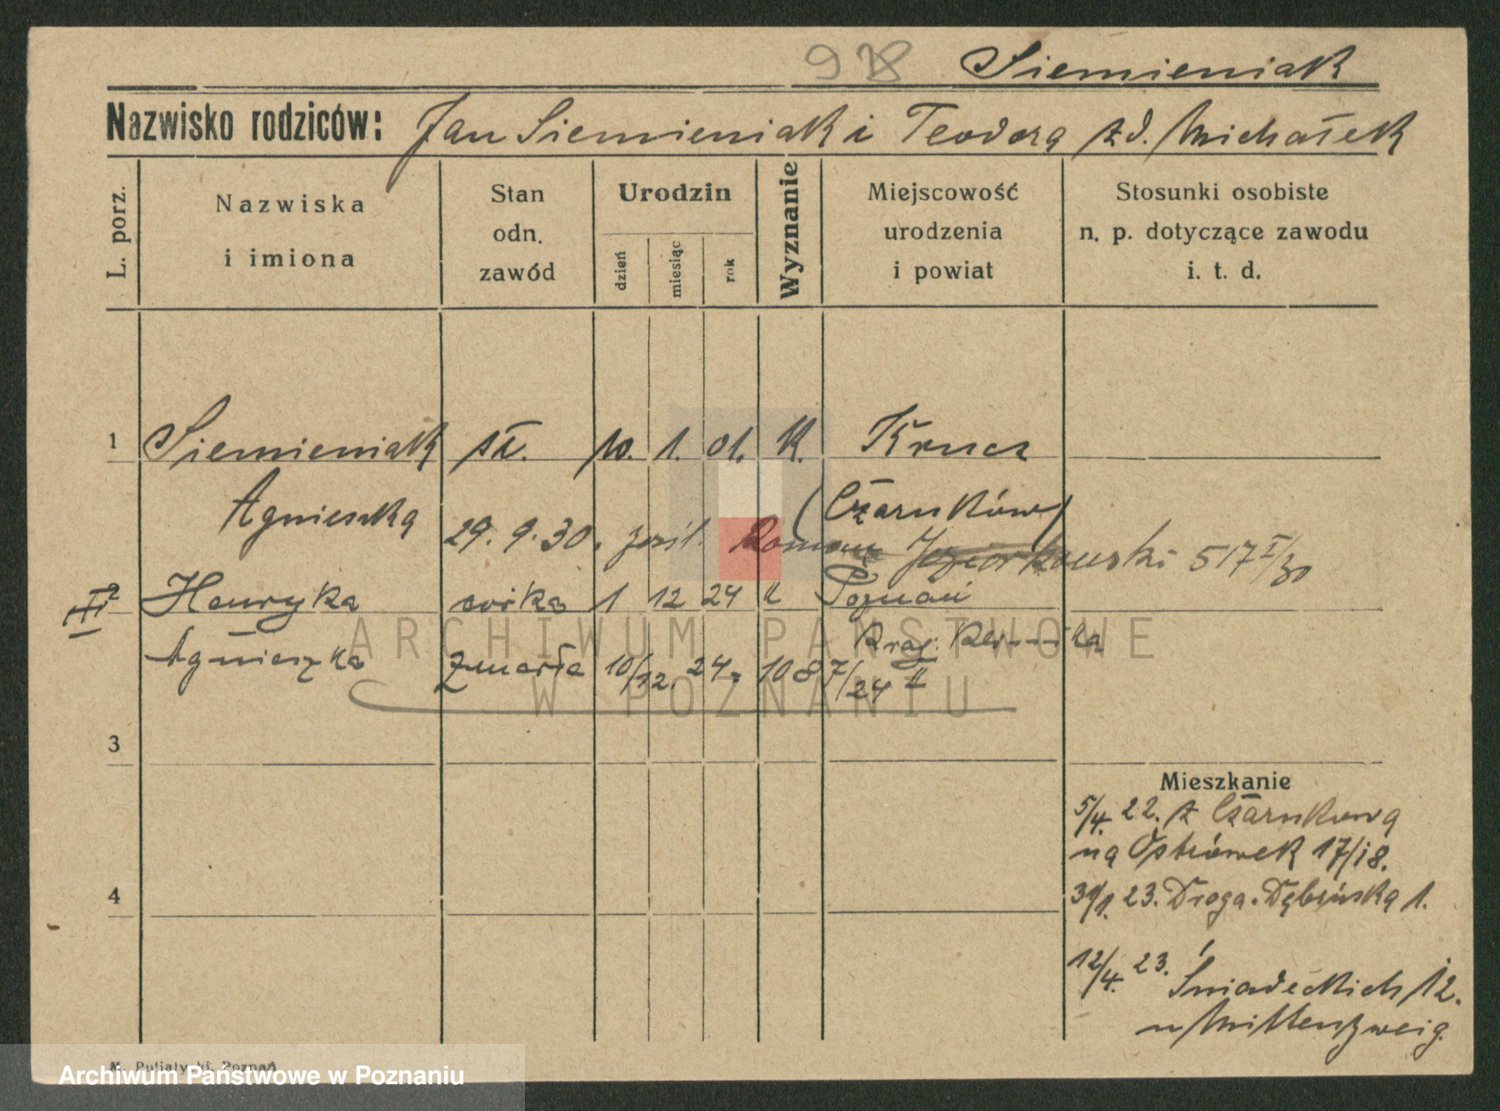 98 Siemieniak
Nazwisko rodziców: Jan Siemieniak i Teodora z d. Michałek
L. porz.
Nazwiska
i imiona
Stan
odn.
zawód
Urodzin
dzień
miesiąc
rok
Wyznanie
Miejscowość
urodzenia
i powiat
Stosunki osobiste
n. p. dotyczące zawodu
i. t. d.
1 Siemieniak sł. 10. 1. 01. K. Krucz
Agnieszka (Czarnków)
29. 9. 30. Roman Jeziorkowski 517 I/30
2 Henryka córka 1 12 24 " Poznań
XI
Agnieszka zmarła 10/12. 24. 1087/24 II
ARCHIWUM PAŃSTWOWE
W POZNANIU
3
Mieszkanie
5/4. 22. z Czarnkowa
na Ostrówek 17/18.
4
23. Droga Dębińska 1.
12/4. 23. Śniadeckich 12.
u Mittenzweig.
Poznań
Archiwum Państwowe w Poznaniu